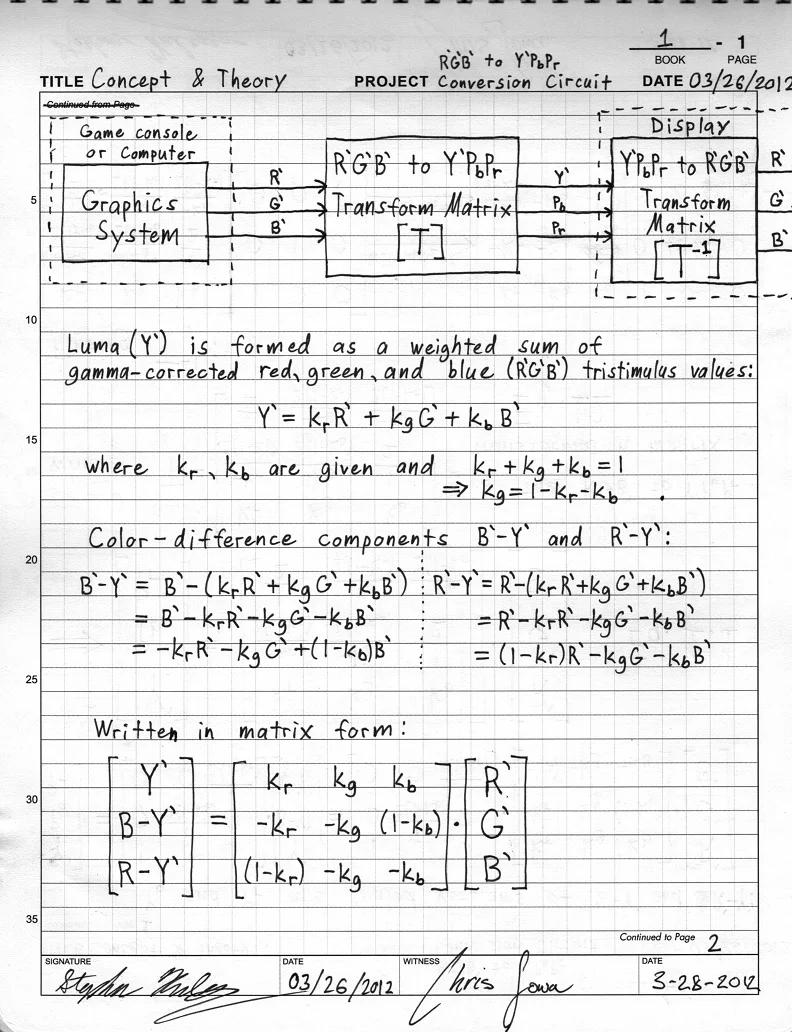 1 - 1
BOOK PAGE
TITLE Concept & Theory PROJECT R`G`B` to Y`PbPr Conversion Circuit DATE 03/26/2012
Continued from Page
Game console
or Computer
Graphics
System
R`
G`
B`
R`G`B` to Y`PbPr
Transform Matrix
[T]
Y`
Pb
Pr
Display
Y`PbPr to R`G`B`
Transform
Matrix
[T⁻¹]
R`
G`
B`
5
10
Luma (Y`) is formed as a weighted sum of
gamma-corrected red, green, and blue (R`G`B`) tristimulus values:
Y` = krR` + kgG` + kbB`
15
where kr, kb are given and kr + kg + kb = 1
⇒ kg = 1-kr-kb .
Color-difference components B`-Y` and R`-Y`:
20
B`-Y` = B`-(krR` + kgG` + kbB`)
= B`-krR`-kgG`-kbB`
= -krR`-kgG`+(1-kb)B`
R`-Y` = R`-(krR`+kgG`+kbB`)
= R`-krR`-kgG`-kbB`
= (1-kr)R`-kgG`-kbB`
25
Written in matrix form:
[Y`] [kr kg kb] [R`]
30
[B-Y`] = [-kr -kg (1-kb)] · [G`]
[R-Y`] [(1-kr) -kg -kb] [B`]
35
Continued to Page 2
SIGNATURE DATE WITNESS DATE
03/26/2012 Chris Iowa 3-28-2012